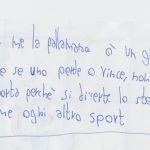 me la pallamano è un g
e se uno perde o vince, non
orta perchè si diverte lo ste
me ogni altro sport